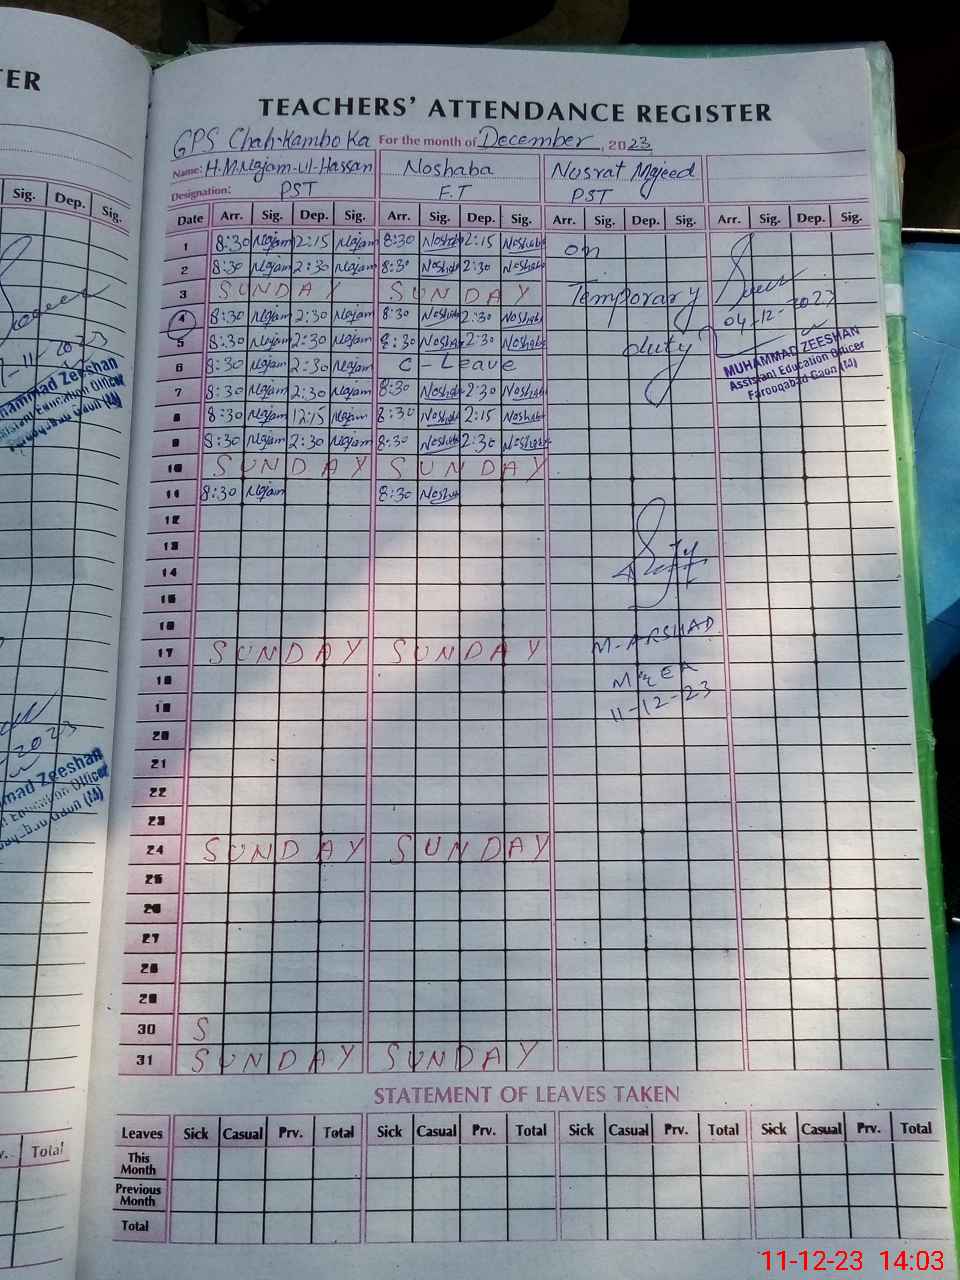 TER
TEACHERS' ATTENDANCE REGISTER
GPS Chah Kambo Ka For the month of December, 2023
Name: H.M Najam-ul-Hassan Noshaba Nusrat Majeed
Designation: PST F.T PST
Sig. Dep. Sig.
Date Arr. Sig. Dep. Sig. Arr. Sig. Dep. Sig. Arr. Sig. Dep. Sig. Arr. Sig. Dep. Sig.
1 8:30 Najam 2:15 Najam 8:30 Noshaba 2:15 Noshaba on
2 8:30 Najam 2:30 Najam 8:30 Noshaba 2:30 Noshaba
3 SUNDAY SUNDAY Temporary
4 8:30 Najam 2:30 Najam 8:30 Noshaba 2:30 Noshaba 04-12-2023
5 8:30 Najam 2:30 Najam 8:30 Noshaba 2:30 Noshaba duty
MUHAMMAD ZEESHAN
Assistant Education Officer
Farooqabad Gaon (M)
6 8:30 Najam 2:30 Najam C-Leave
7 8:30 Najam 2:30 Najam 8:30 Noshaba 2:30 Noshaba
8 8:30 Najam 12:15 Najam 8:30 Noshaba 2:15 Noshaba
9 8:30 Najam 2:30 Najam 8:30 Noshaba 2:30 Noshaba
10 SUNDAY SUNDAY
11 8:30 Najam 8:30 Nosha
12
13
14
15
16
17 SUNDAY SUNDAY M-ARSHAD
18 MEA
19 11-12-23
20
21
22
23
24 SUNDAY SUNDAY
25
26
27
28
29
30 S
31 SUNDAY SUNDAY
-11-2023
ammad Zeeshan
Education Officer
Gaon (M)
2023
mad Zeeshan
Education Officer
Gaon (M)
STATEMENT OF LEAVES TAKEN
v. Total
Leaves Sick Casual Prv. Total Sick Casual Prv. Total Sick Casual Prv. Total Sick Casual Prv. Total
This Month
Previous Month
Total
11-12-23 14:03